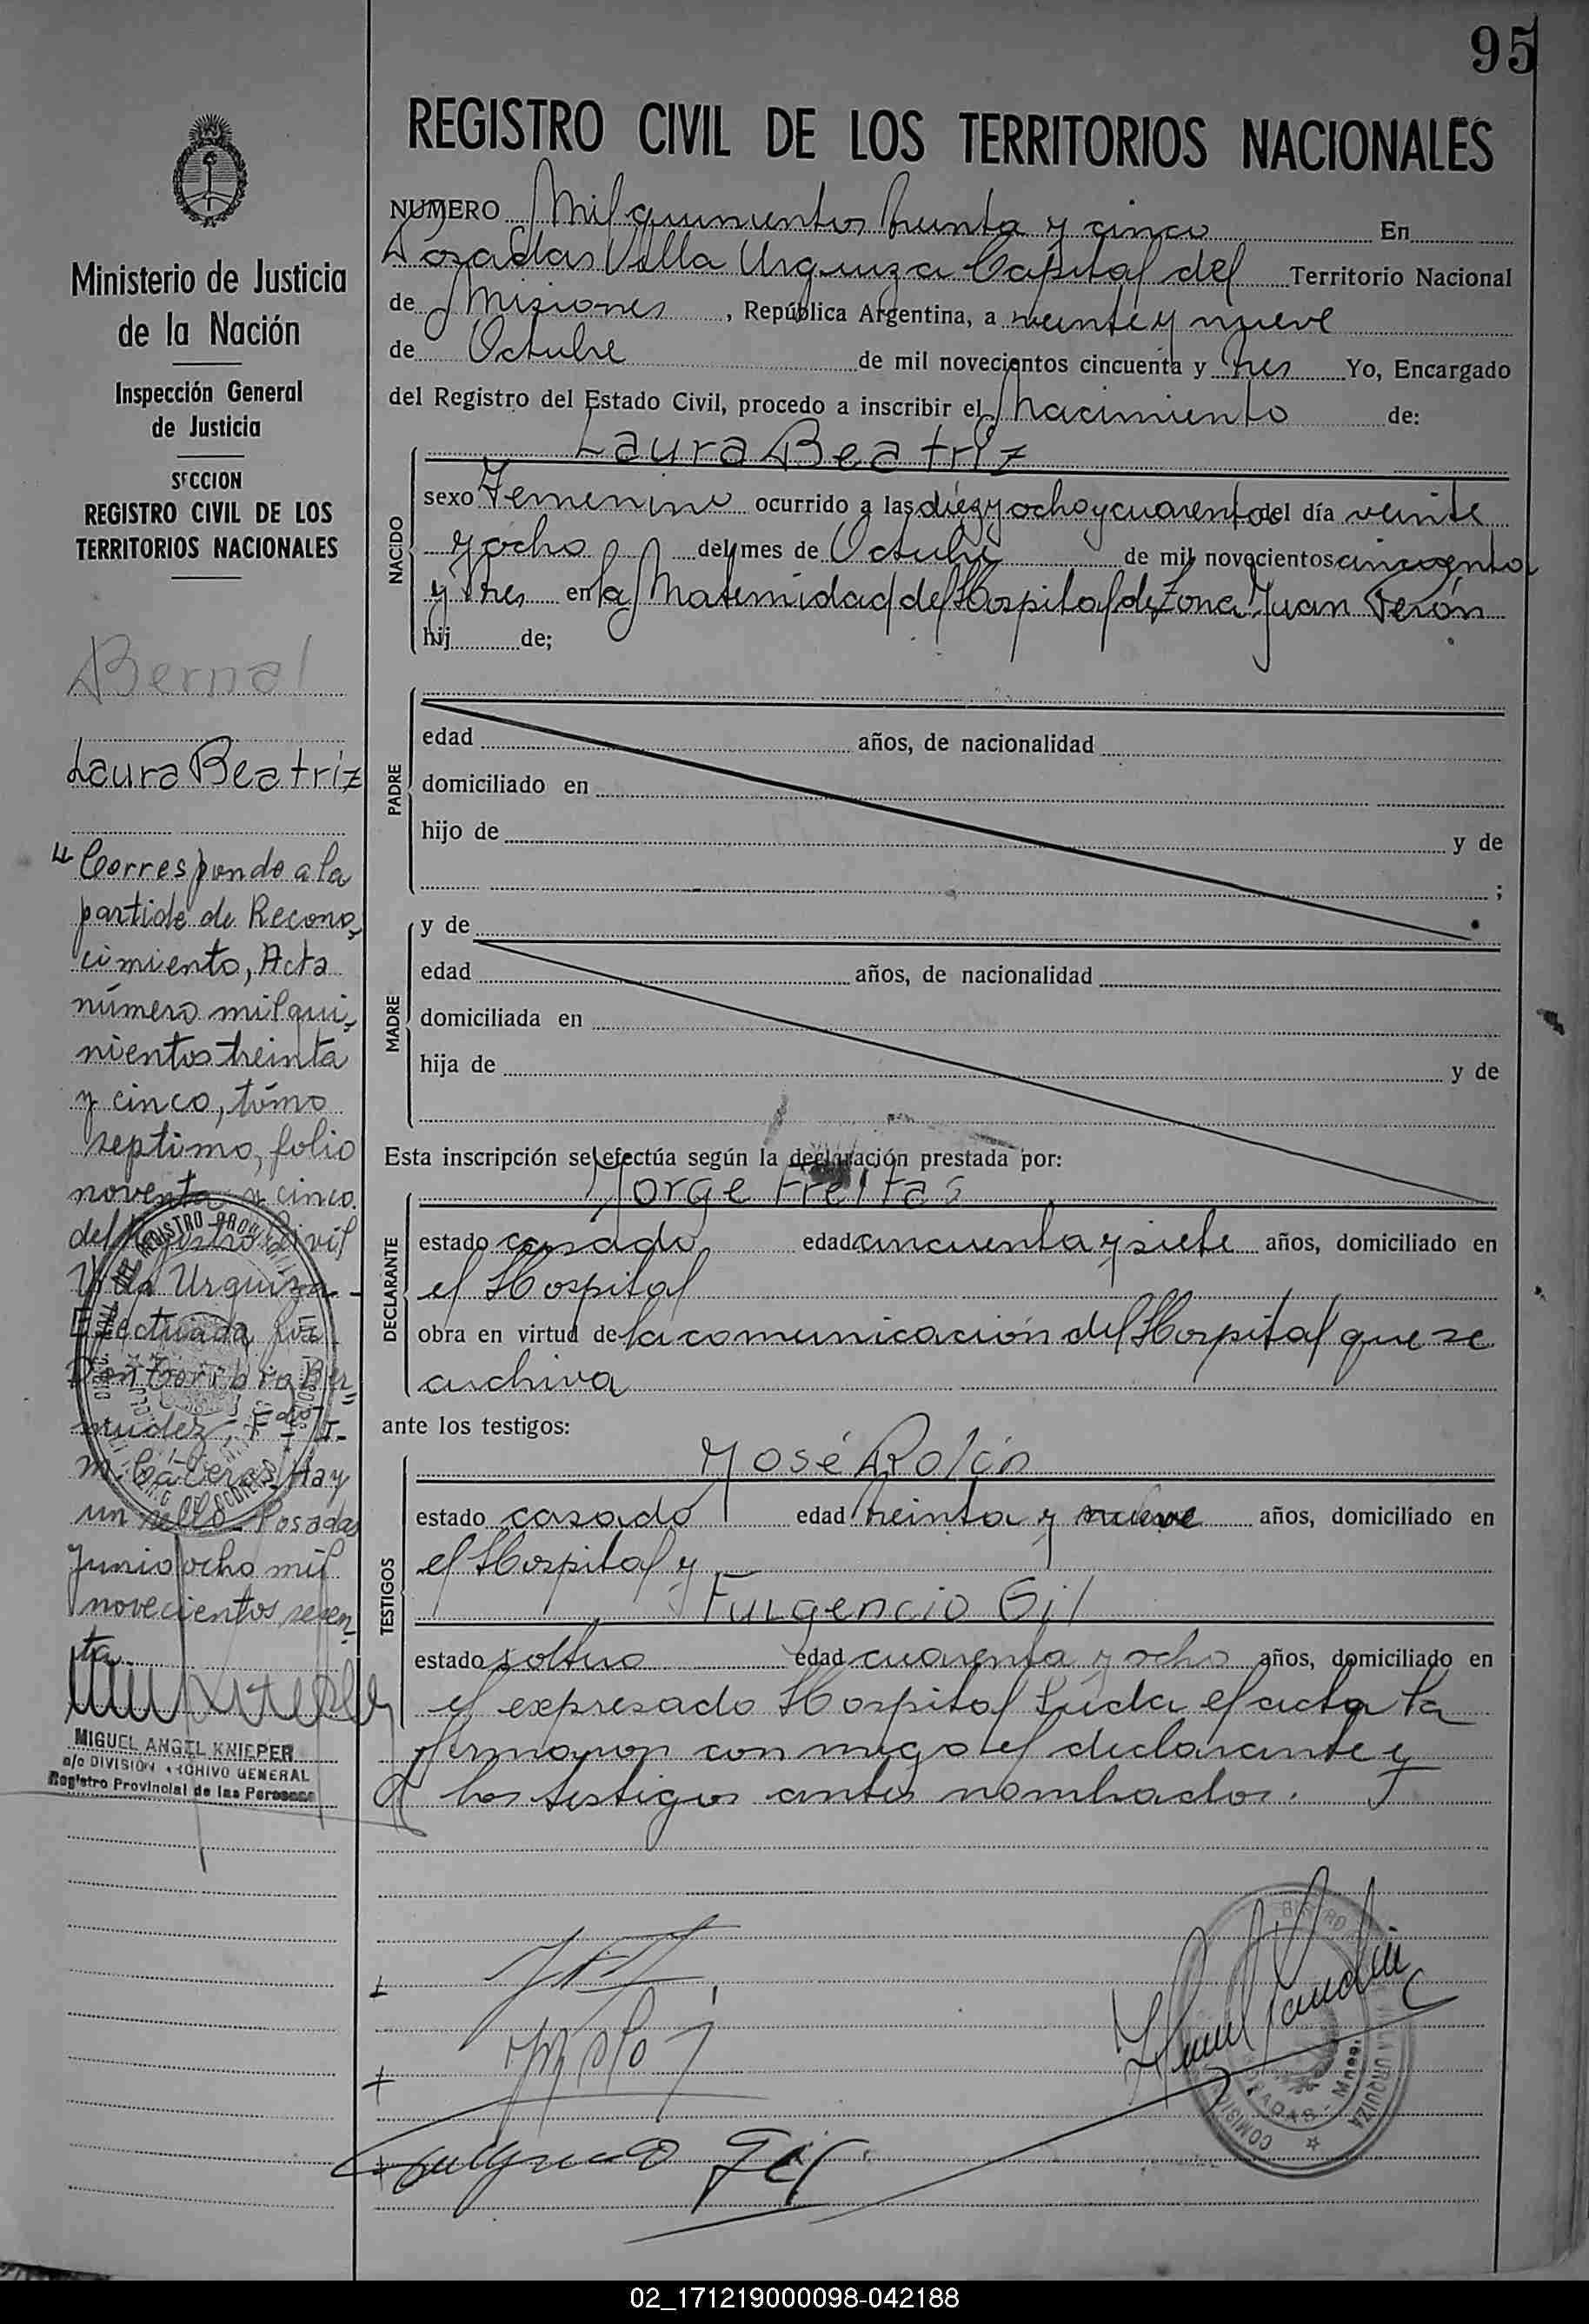 95
REGISTRO CIVIL DE LOS TERRITORIOS NACIONALES
NUMERO Mil quinientos treinta y cinco En
Posadas Villa Urquiza Capital del Territorio Nacional
de Misiones, República Argentina, a veinte y nueve
de Octubre de mil novecientos cincuenta y tres Yo, Encargado
del Registro del Estado Civil, procedo a inscribir el Nacimiento de:
Laura Beatriz
NACIDO
sexo Femenino ocurrido a las diez y ocho y cuarenta del día veinte
y ocho del mes de Octubre de mil novecientos cincuenta
y tres en la Maternidad del Hospital de Zona Juan Perón
hij de;
PADRE
edad años, de nacionalidad
domiciliado en
hijo de y de
;
MADRE
y de
edad años, de nacionalidad
domiciliada en
hija de y de
Esta inscripción se efectúa según la declaración prestada por:
Jorge Freitas
DECLARANTE
estado casado edad cincuenta y siete años, domiciliado en
el Hospital
obra en virtud de la comunicación del Hospital que se
archiva
ante los testigos:
José Rolón
TESTIGOS
estado casado edad treinta y nueve años, domiciliado en
el Hospital y
Fulgencio Gil
estado soltero edad cuarenta y ocho años, domiciliado en
el expresado Hospital Leída el acta la
firmaron con migo el declarante y
los testigos antes nombrados.
Fulgencio Gil
Ministerio de Justicia
de la Nación
Inspección General
de Justicia
SECCION
REGISTRO CIVIL DE LOS
TERRITORIOS NACIONALES
Bernal
Laura Beatriz
" Corresponde a la
partida de Recono-
cimiento, Acta
número mil qui-
nientos treinta
y cinco, tómo
septimo, folio
noventa y cinco.
del Registro Civil
Villa Urquiza.-
Efectuada por
Don Toribio Ber-
mudez. Fdo
M. Caceres, Hay
un sello - Posadas
Junio ocho mil
novecientos sesen-
ta
MIGUEL ANGEL KNIEPER
a/c DIVISIÓN ARCHIVO GENERAL
Registro Provincial de las Personas
POSADAS - Mnes.
VILLA URQUIZA
02_171219000098-042188